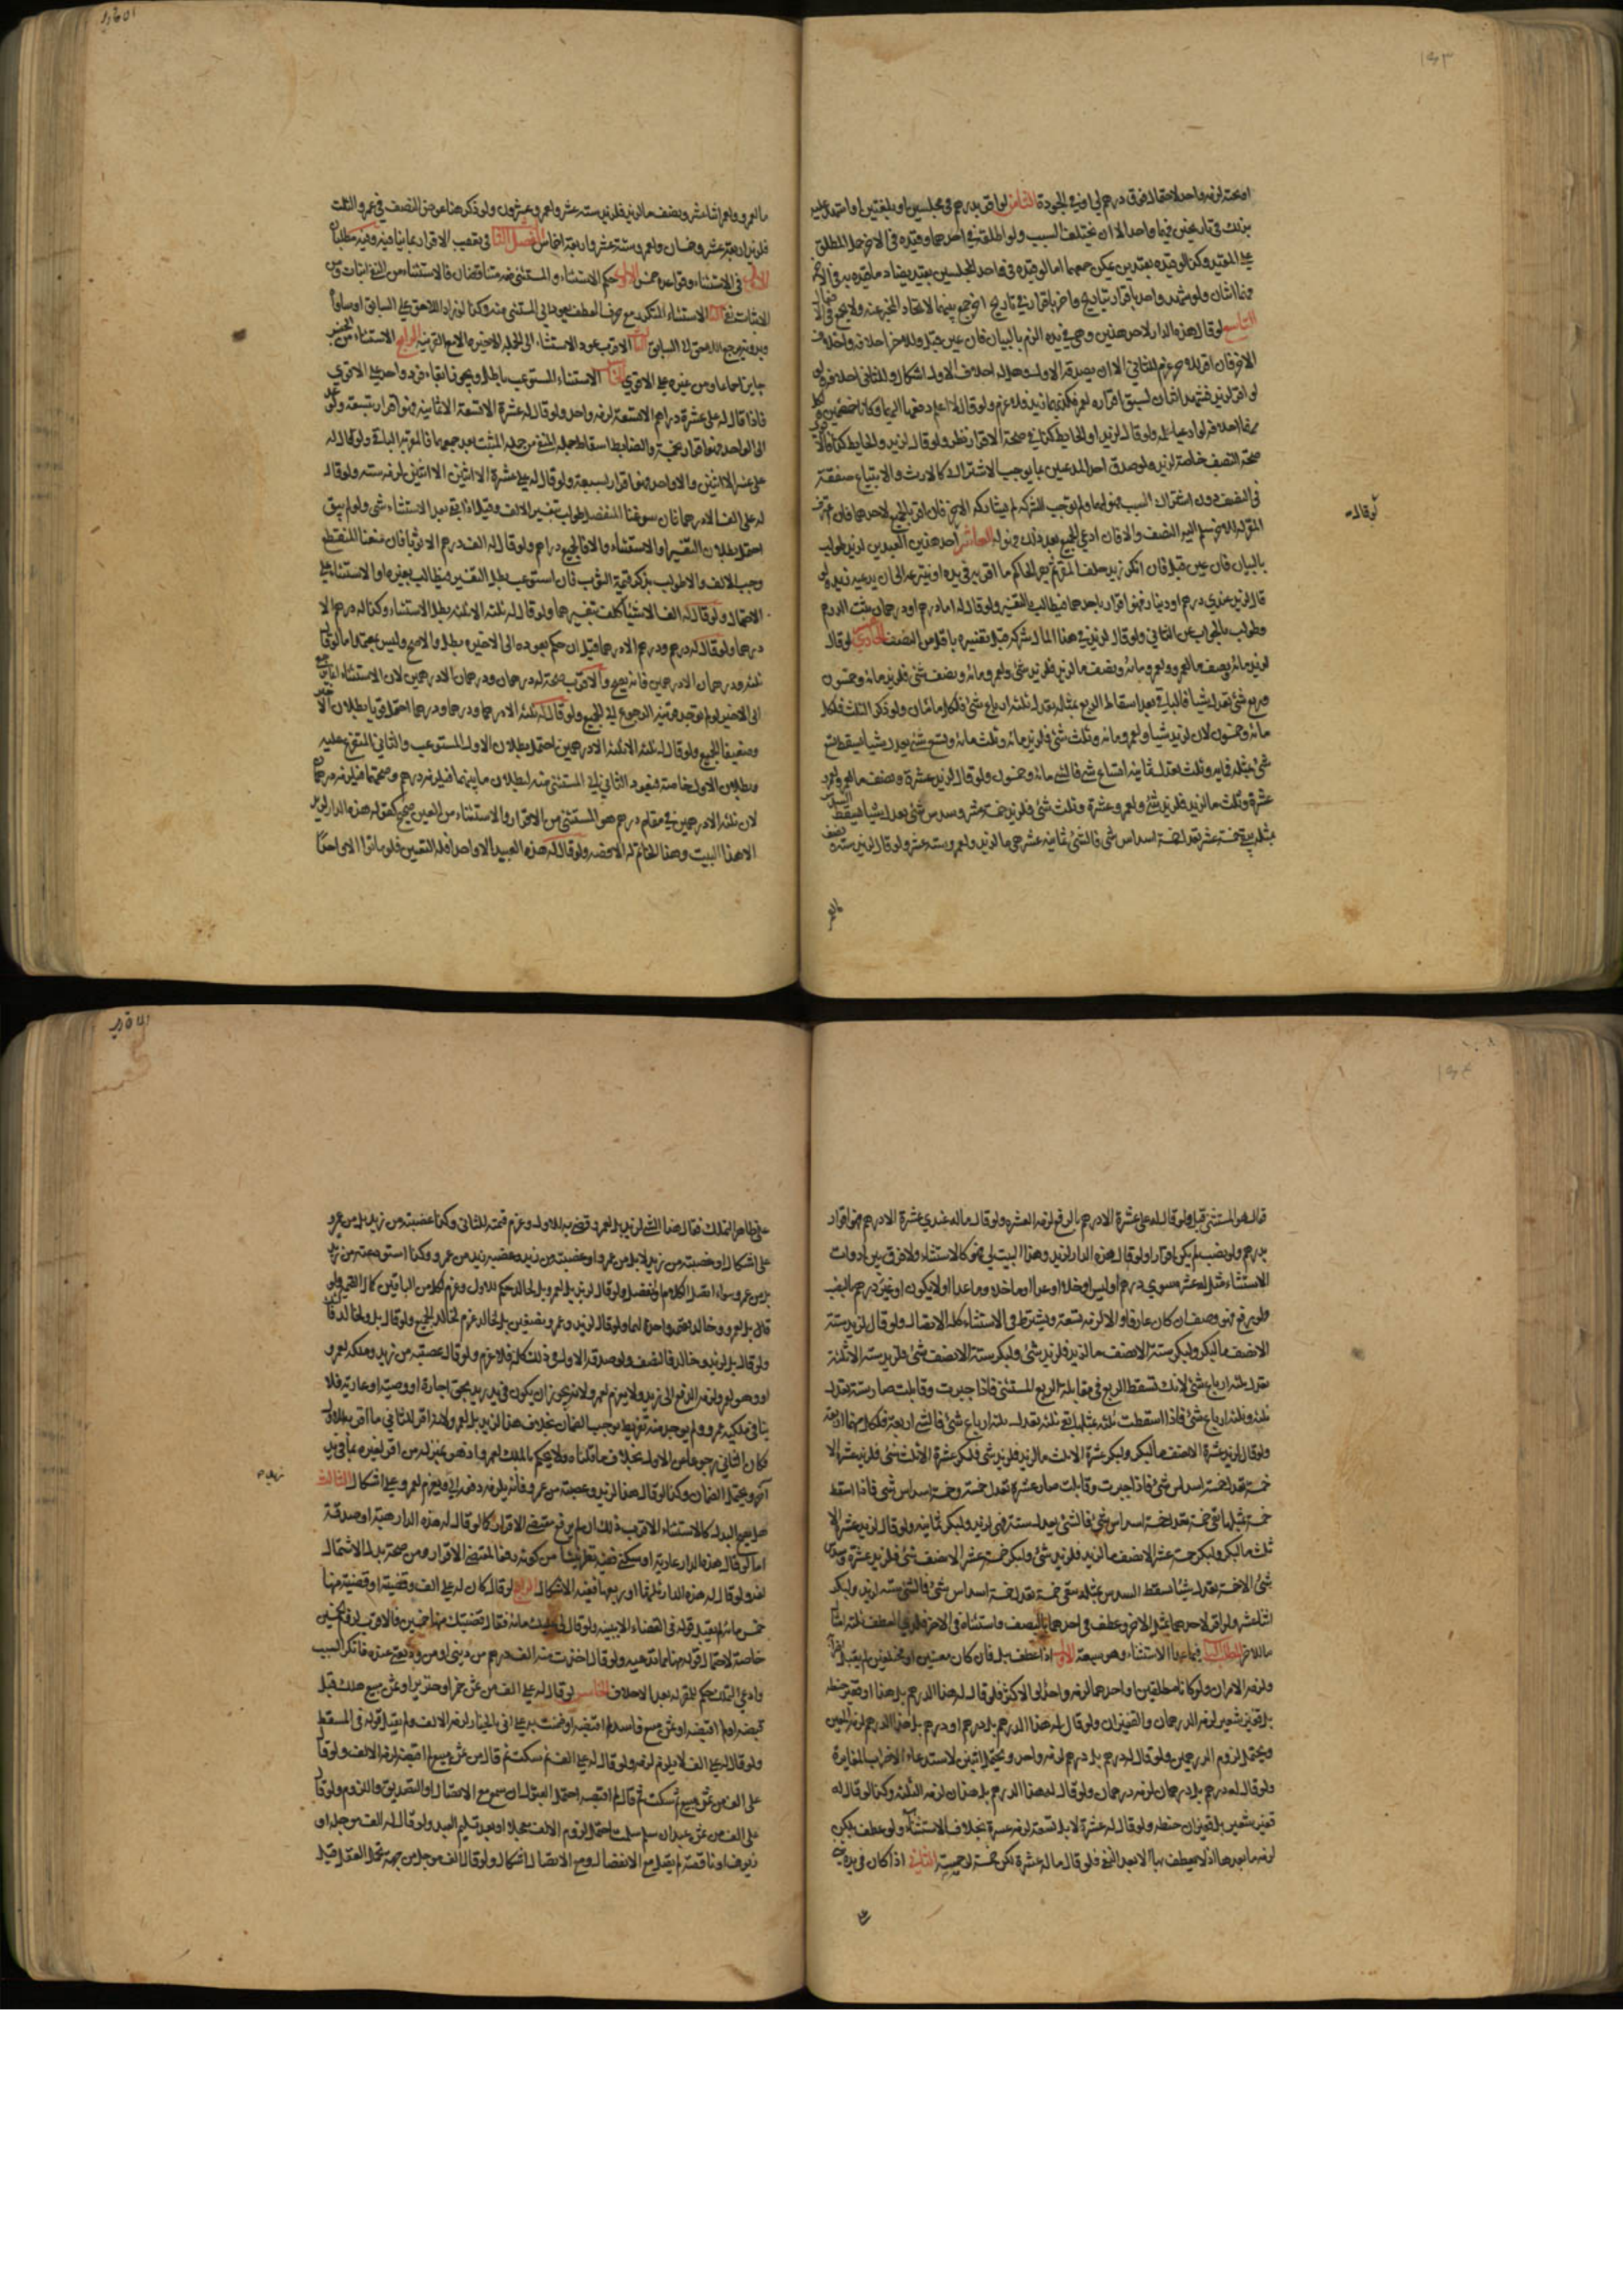 او نحته لزمه واحد لاحتمال فوق درهم لي او في الجودة الثامن لو اقر بدرهم في مجلسين او بلغتين او اشهد عليه
بذلك في تاريخين فهما واحد الا ان يختلف السبب ولو اطلق في احدهما وقيده في الاخر حمل المطلق
على المقيد وكذا لو قيده بقيدين يمكن جمعهما اما لو قيده في احد المجلسين بقيد يضاد ما قيده به في الاخر
فهما اثنان ولو شهد واحد باقرار بتاريخ واخر باقرار في تاريخ اخر جمع بينهما لاتحاد المخبر عنه ولا يجمع في الا
التاسع لو قال هذه الدار لاحد هذين وهي في يده الزم بالبيان فان عين قبل وللاخر احلافه واحلاف
الاخر فان اقر للاخر غرم للثاني الا ان يصدقه الاول وهل له احلاف الاول اشكال وللثاني احلافه
لو اقر لزيد فشهد اثنان بسبق اقراره لعمرو فكذبهما زيد فلا غرم ولو قال لا اعلم دفعها اليهما وكانا خصمين ولكل
منهما احلافه لو ادعيا علمه ولو قال لزيد او الحايط كذا ففي صحة الاقرار نظر ولو قال لزيد والحايط كذا فالا
صحة النصف خاصة لزيد ولو صدق احد المدعيين بما يوجب الاشتراك كالارث والابتياع صفقة
في النصف دون اشتراك السبب فهو لهما ولو لم توجب الشركة لم يشاركه الاخر فان اقر بالجميع لاحدهما فان اعترف
المقر له للاخر سلم اليه النصف والا فان ادعى الجميع بعد ذلك فهو له العاشر احد هذين العبدين لزيد طولب
بالبيان فان عين قبل فان انكر زيد حلف المقر ثم يقر الحاكم ما اقر به في يده او ينتزعه الى ان يدعيه زيد
قال لزيد عندي درهم او دينار فهو اقرار باحدهما فيطالب بالتفسير ولو قال له اما درهم او درهمان ثبت الدرهم
وطولب بالجواب عن الثاني ولو قال لزيد في هذا المال شركة قبل تفسيره باقل من النصف الحادي لو قال
لزيد مائة ونصف ما لعمرو ولعمرو مائة ونصف ما لزيد فلزيد شئ ولعمرو مائة ونصف شئ فلزيد مائة وخمسون
وربع شئ تعدل شيئا فالباقي بعد اسقاط الربع بمثله تعدل ثلثة ارباع شئ فلكل مائتان ولو ذكر الثلث فلكل
مائة وخمسون لان لزيد شيئا ولعمرو مائة وثلث شئ فلزيد مائة وثلث مائة وتسع شئ يعدل شيئا يسقط تسع
شئ بمثله فمائة وثلث تعدل ثمانية اتساع شئ فالشئ مائة وخمسون ولو قال لزيد عشرة ونصف ما لعمرو ولعمرو
عشرة وثلث ما لزيد فلزيد شئ ولعمرو عشرة وثلث شئ فلزيد خمسة عشر وسدس شئ يعدل شيئا فيسقط السدس
بمثله يبقى خمسة عشر تعدل خمسة اسداس شئ فالشئ ثمانية عشر هي ما لزيد ولعمرو ستة عشر ولو قال لزيد ستة ونصف
ما لعمرو
لو قال
ما لعمرو ولعمرو اثنا عشر ونصف ما لزيد فلزيد ستة عشر ولعمرو عشرون ولو ذكر هنا عوض النصف في عمرو الثلث
فلزيد اربعة عشر وخمسان ولعمرو ستة عشر واربعة اخماس الفصل الثا في تعقيب الاقرار بما ينافيه وفيه مطلبان
الاول في الاستثناء وقواعده خمس الاول حكم الاستثناء والمستثنى منه متناقضان فالاستثناء من النفي اثبات ومن
الاثبات نفي الثا الاستثناء المتكرر مع حرف العطف يعود الى المستثنى منه وكذا لو زاد اللاحق على السابق او ساواه
وبدونه يرجع اللاحق الى السابق الثا الاقرب عود الاستثناء الى الجملة الاخيرة الا مع القرينة الرابع الاستثناء من الجنس
جايز اجماعا ومن غيره على الاقوى الخا الاستثناء المستوعب باطل ويجوز ابقاء فرد واحد على الاقوى
فاذا قال له علي عشرة دراهم الا تسعة لزمه واحد ولو قال له عشرة الا تسعة الا ثمانية فهو اقرار بتسعة ولو عد
الى الواحد فهو اقرار بخمسة والضابط اسقاط جملة المنفي من جملة المثبت بعد جمعهما فالمقر به الباقي ولو قال له
علي عشرة الا اثنين والا واحد فهو اقرار بسبعة ولو قال له علي عشرة الا اثنين الا اثنين لزمه ستة ولو قال
له علي الف الا درهما فان سوغنا المنفصل طولب بتفسير الالف وقيل اذا بقي بعد الاستثناء شئ ولو لم يبق
احتمل بطلان التفسير او الاستثناء والا فالجميع دراهم ولو قال له الف درهم الا ثوبا فان منعنا المنقطع
وجب الالف والا طولب بذكر قيمة الثوب فان استوعب بطل التفسير فيطالب بغيره او الاستثناء على
الاحتمال ولو قال له الف الا شيئا كلف تفسيرهما ولو قال له ثلثة الا ثلثة بطل الاستثناء وكذا له درهم الا
درهما ولو قال له درهم ودرهم الا درهما قيل ان حكم بعوده الى الاخيرة بطل والا صح وليس بمعتمد اما لو قال
ثلثة ودرهمان الا درهمين فانه يصح والاقرب صحة له درهمان ودرهمان الا درهمين لان الاستثناء انما يرجع
الى الاخير لو لم توجد قرينة الرجوع الى الجميع ولو قال له ثلثة الا درهما ودرهما ودرهما احتمل قويا بطلان الاخير
وضعيفا الجميع ولو قال له ثلثة الا ثلثة الا درهمين احتمل بطلان الاول المستوعب والثاني المتفرع عليه
وبطلان الاول خاصة فيعود الثاني الى المستثنى منه لبطلان ما بينهما فيلزمه درهم وصحتهما فيلزمه درهمان
لان ثلثة الا درهمين في مقام درهم هو المستثنى من الاقرار والاستثناء من العين صحيح كقوله هذه الدار لزيد
الا هذا البيت وهذا الخاتم له الا فصه ولو قال له هذه العبيد الا واحدا فله التعيين فلو ماتوا الا واحدا
قال هو المستثنى قبل ولو قال له علي عشرة الا درهم بالرفع لزمه العشرة ولو قال ما له عندي عشرة الا درهم فهو اقرار
بدرهم ولو نصب لم يكن اقرارا ولو قال هذه الدار لزيد وهذا البيت لي فهو كالاستثناء ولا فرق بين ادوات
الاستثناء مثل له عشرة سوى درهم او ليس او خلا او عدا او ما خلا وما عدا او لا يكون او غير درهم بالنصب
ولو رفع فهو وصف ان كان عارفا والا لزمه تسعة ويشترط في الاستثناء كله الاتصال ولو قال لزيد ستة
الا نصف ما لبكر ولبكر ستة الا نصف ما لزيد فلزيد شئ ولبكر ستة الا نصف شئ فلزيد ستة الا ثلثة
تعدل ثلثة ارباع شئ لانك تسقط الربع في مقابلة الربع المستثنى فاذا جبرت وقابلت صار ستة تعدل
ثلثة وثلثة ارباع شئ فاذا اسقطت ثلثة بمثلها بقي ثلثة تعدل ثلثة ارباع شئ فالشئ اربعة فلكل منهما اربعة
ولو قال لزيد عشرة الا نصف ما لبكر ولبكر عشرة الا ثلث ما لزيد فلزيد شئ فلبكر عشرة الا ثلث شئ فلزيد عشرة الا
خمسة تعدل خمسة اسداس شئ فاذا جبرت وقابلت صار عشرة تعدل خمسة وخمسة اسداس شئ فاذا اسقط
خمسة بمثلها بقي خمسة تعدل خمسة اسداس شئ فالشئ يعدل ستة فهي لزيد ولبكر ثمانية ولو قال لزيد عشرة الا
ثلث ما لبكر ولبكر خمسة عشر الا نصف ما لزيد فلزيد شئ ولبكر خمسة عشر الا نصف شئ فلزيد عشرة وسدس
شئ الا خمسة تعدل شيئا تسقط السدس بمثله يبقى خمسة تعدل خمسة اسداس شئ فالشئ ستة لزيد ولبكر
اثنا عشر ولو اقر لاحدهما بمثل الاخر وعطف في احدهما بالنصف واستثناه في الاخر فلذي العطف ثلثة امثال
ما للاخر المطلب الثا فيما عدا الاستثناء وهو سبعة الاول اذا عطف ببل فان كان معينين او مختلفين لم يقبل اضرابه
ولزمه الامران ولو كانا مطلقين او احدهما لزمه واحد او الاكثر فلو قال له هذا الدرهم بل هذا او قفيز حنطة
بل قفيز شعير لزمه الدرهمان والقفيزان ولو قال له هذا الدرهم بل درهم او درهم بل هذا الدرهم لزمه المعين
ويحتمل لزوم الدرهمين ولو قال له درهم بل درهم لزمه واحد ويحتمل اثنين لاستدعاء الاضراب المغايرة
ولو قال له درهم بل درهمان لزمه درهمان ولو قال له هذا الدرهم بل هذان لزمه الثلثة وكذا لو قال له
قفيز شعير بل قفيزان حنطة ولو قال له عشرة لا بل تسعة لزمه عشرة بخلاف الاستثناء ولو عطف بلكن
لزمه ما بعدها اذ لا يعطف بها الا بعد النفي فلو قال ما له عشرة لكن خمسة لزمه خمسة الثانية اذا كان في يده شئ
على ظاهر التملك فقال هذا الشئ لزيد بل لعمرو قضي به للاول وغرم قيمته للثاني وكذا غصبته من زيد بل من عمرو
على اشكال او غصبته من زيد لا بل من عمرو او غصبته من زيد وغصبه زيد من عمرو وكذا استودعته من زيد
بل من عمرو سواء اتصل الكلام او انفصل ولو قال لزيد بل لعمرو بل لخالد حكم للاول وغرم لكل من الباقيين كمال القيمة ولو
قال بل لعمرو وخالد فقيمة واحدة لهما ولو قال لزيد وعمرو نصفين بل لخالد غرم لخالد الجميع ولو قال بل ولخالد فالثلث
ولو قال بل لزيد وخالد فالنصف ولو صدقه الاول في ذلك كله فلا غرم ولو قال غصبته من زيد وملكه لعمرو
او وهو لعمرو لزمه الدفع الى زيد ولا يغرم لعمرو لانه يجوز ان يكون في يد زيد بحق اجارة او وصية او عارية فلا
ينافي ملكية عمرو ولم يوجد منه تفريط يوجب الضمان بخلاف هذا لزيد بل لعمرو لانه اقر للثاني بما اقر به للاول
فكان الثاني رجوعا عن الاول بخلاف ما قلناه ولا يحكم بالملك لعمرو اذ هو بمنزلة من اقر لغيره بما في يد
آخر ويحتمل الضمان وكذا لو قال هذا لزيد وغصبته من عمرو فانه يلزمه دفعه الى زيد ويغرم لعمرو على اشكال الثالث
زيد
هل يصح البدل كالاستثناء الاقرب ذلك ان لم يرفع مقتضى الاقرار كما لو قال له هذه الدار هبة او صدقة
اما لو قال هذه الدار عارية او سكنى ففيه نظر ينشأ من كونه رفعا لمقتضى الاقرار ومن صحة بدل الاشتمال
لغة ولو قال له هذه الدار ثلثها او ربعها ففيه الاشكال الرابع لو قال كان له علي الف وقضيته او قضيته منها
خمس مائة لم يقبل قوله في القضاء الا ببينة ولو قال لي عليك مائة فقال قضيتك منها خمسين فالاقرب لزوم الخمسين
خاصة لاحتمال قوله منها مما تدعيه ولو قال اخذت منه الف درهم من ديني او من وديعتي عنده فانكر السبب
وادعى التملك حكم للمقر له بعد الاحلاف الخامس لو قال له علي الف من ثمن خمر او خنزير او ثمن مبيع هلك قبل
قبضه او لم اقبضه او ثمن مبيع فاسد لم اقبضه او ضمنت به على اني بالخيار لزمه الالف ولم يقبل قوله في المسقط
ولو قال له علي الف لا يلزم لزمه ولو قال له علي الف ثم سكت ثم قال من ثمن مبيع لم اقبضه لزمه الالف ولو قال
علي الف من ثمن مبيع ثم سكت ثم قال لم اقبضه احتمل القبول ان سمع مع الاتصال او التصديق واللزوم ولو قال
علي الف من ثمن عبد ان سلم سلمت احتمل لزوم الالف معجلا او بعد تسليم العبد ولو قال له الف مؤجلة او
زيوف او ناقصة لم يقبل مع الانفصال ومع الاتصال اشكال ولو قال الف مؤجل من جهة تحمل العقل قبل